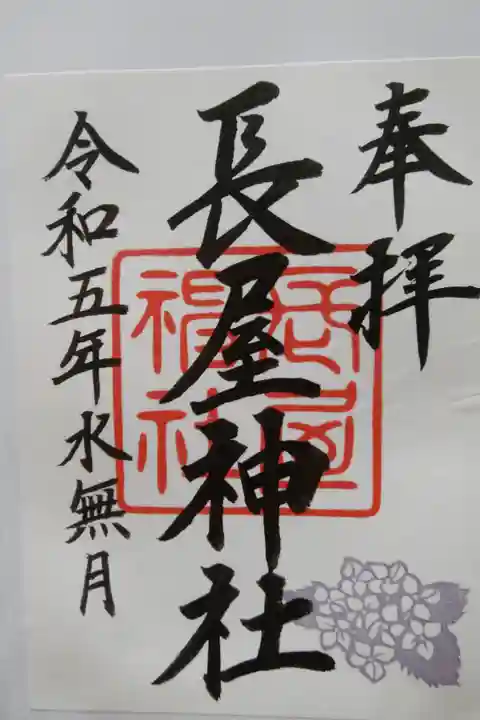 奉拝
長屋神社
令和五年水無月